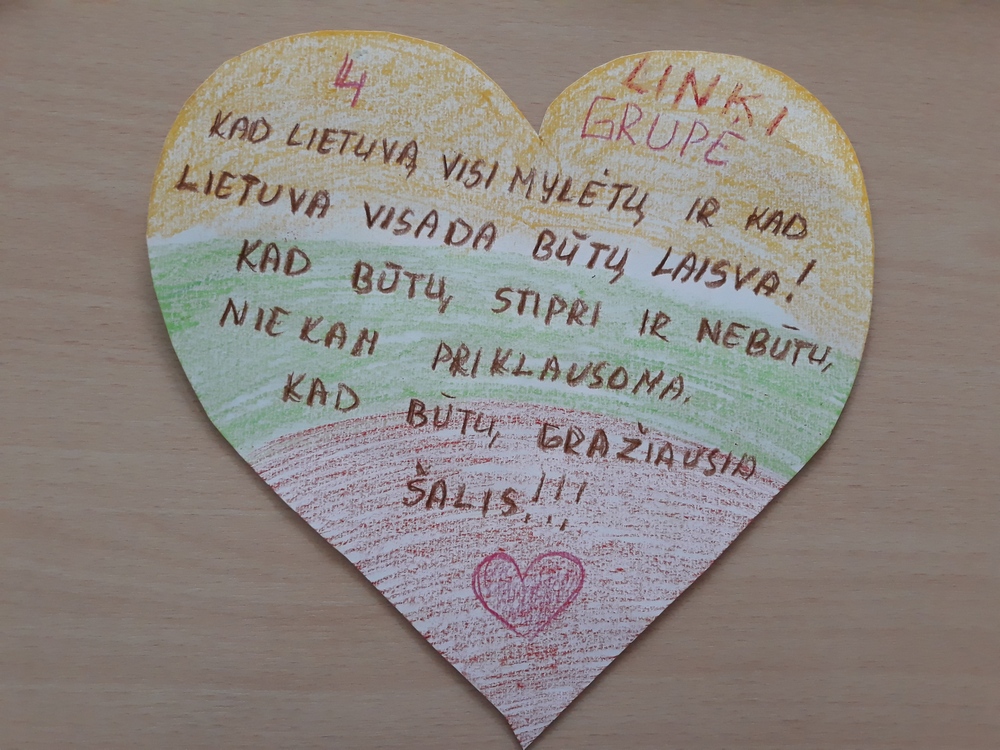 4 LINKI
GRUPE
KAD LIETUVĄ VISI MYLĖTŲ IR KAD
LIETUVA VISADA BŪTŲ LAISVA!
KAD BŪTŲ STIPRI IR NEBŪTŲ
NIEKAM PRIKLAUSOMA.
KAD BŪTŲ GRAŽIAUSIA
ŠALIS!!!